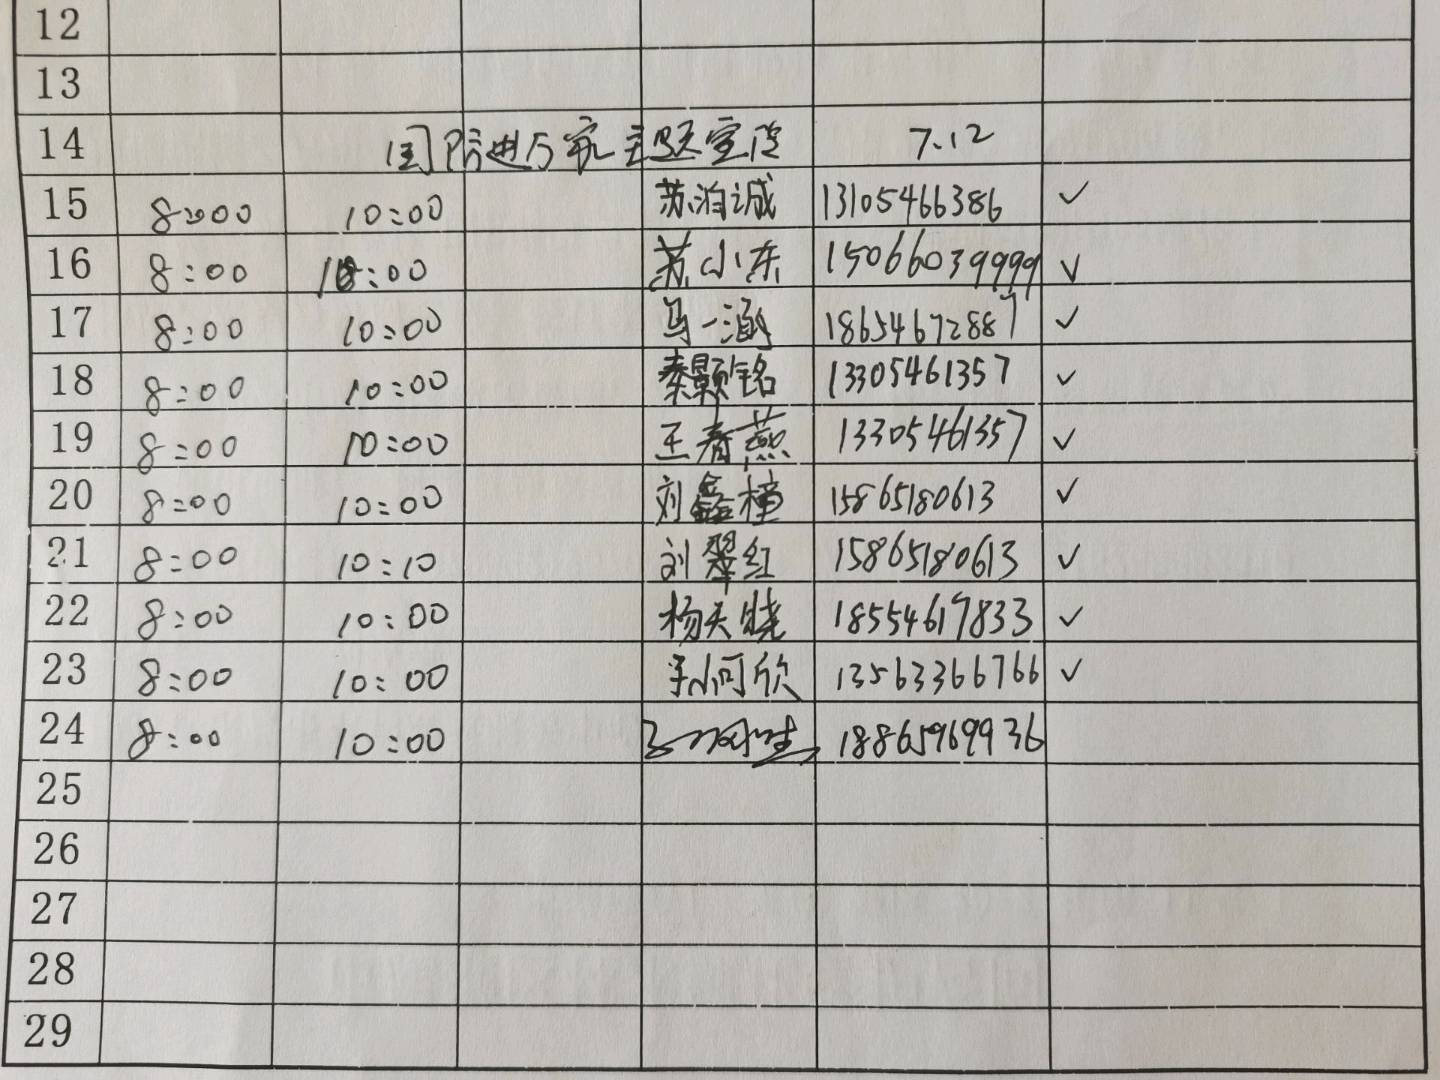 12
13
14 国防进万家主题宣传 7.12
15 8:00 10:00 苏泊诚 13105466386 ✓
16 8:00 10:00 苏小东 15066039999 ✓
17 8:00 10:00 马一涵 18654672887 ✓
18 8:00 10:00 秦颢铭 13305461357 ✓
19 8:00 10:00 王春燕 13305461357 ✓
20 8:00 10:00 刘鑫橦 15865180613 ✓
21 8:00 10:10 刘翠红 15865180613 ✓
22 8:00 10:00 杨天晓 18554617833 ✓
23 8:00 10:00 可欣 13563366766 ✓
24 8:00 10:00 18865969936
25
26
27
28
29